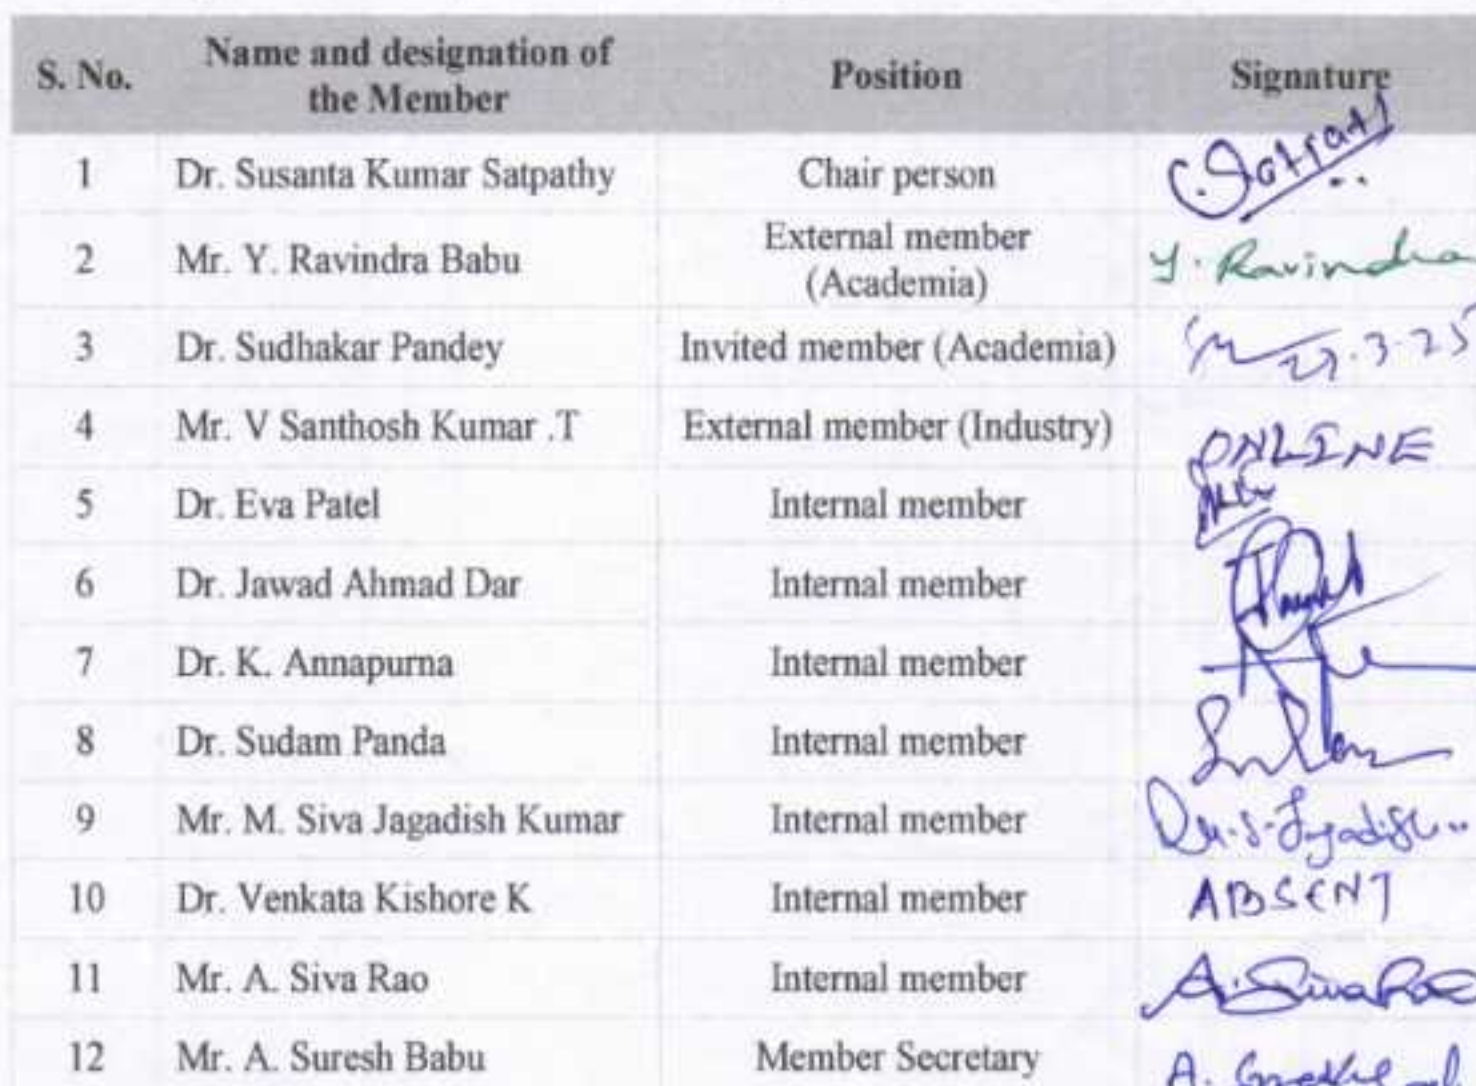 S. No. Name and designation of the Member Position Signature
1 Dr. Susanta Kumar Satpathy Chair person
2 Mr. Y. Ravindra Babu External member (Academia) Y. Ravindra
3 Dr. Sudhakar Pandey Invited member (Academia) 27.3.25
4 Mr. V Santhosh Kumar .T External member (Industry) ONLINE
5 Dr. Eva Patel Internal member
6 Dr. Jawad Ahmad Dar Internal member
7 Dr. K. Annapurna Internal member
8 Dr. Sudam Panda Internal member
9 Mr. M. Siva Jagadish Kumar Internal member
10 Dr. Venkata Kishore K Internal member ABSENT
11 Mr. A. Siva Rao Internal member A. Siva Rao
12 Mr. A. Suresh Babu Member Secretary